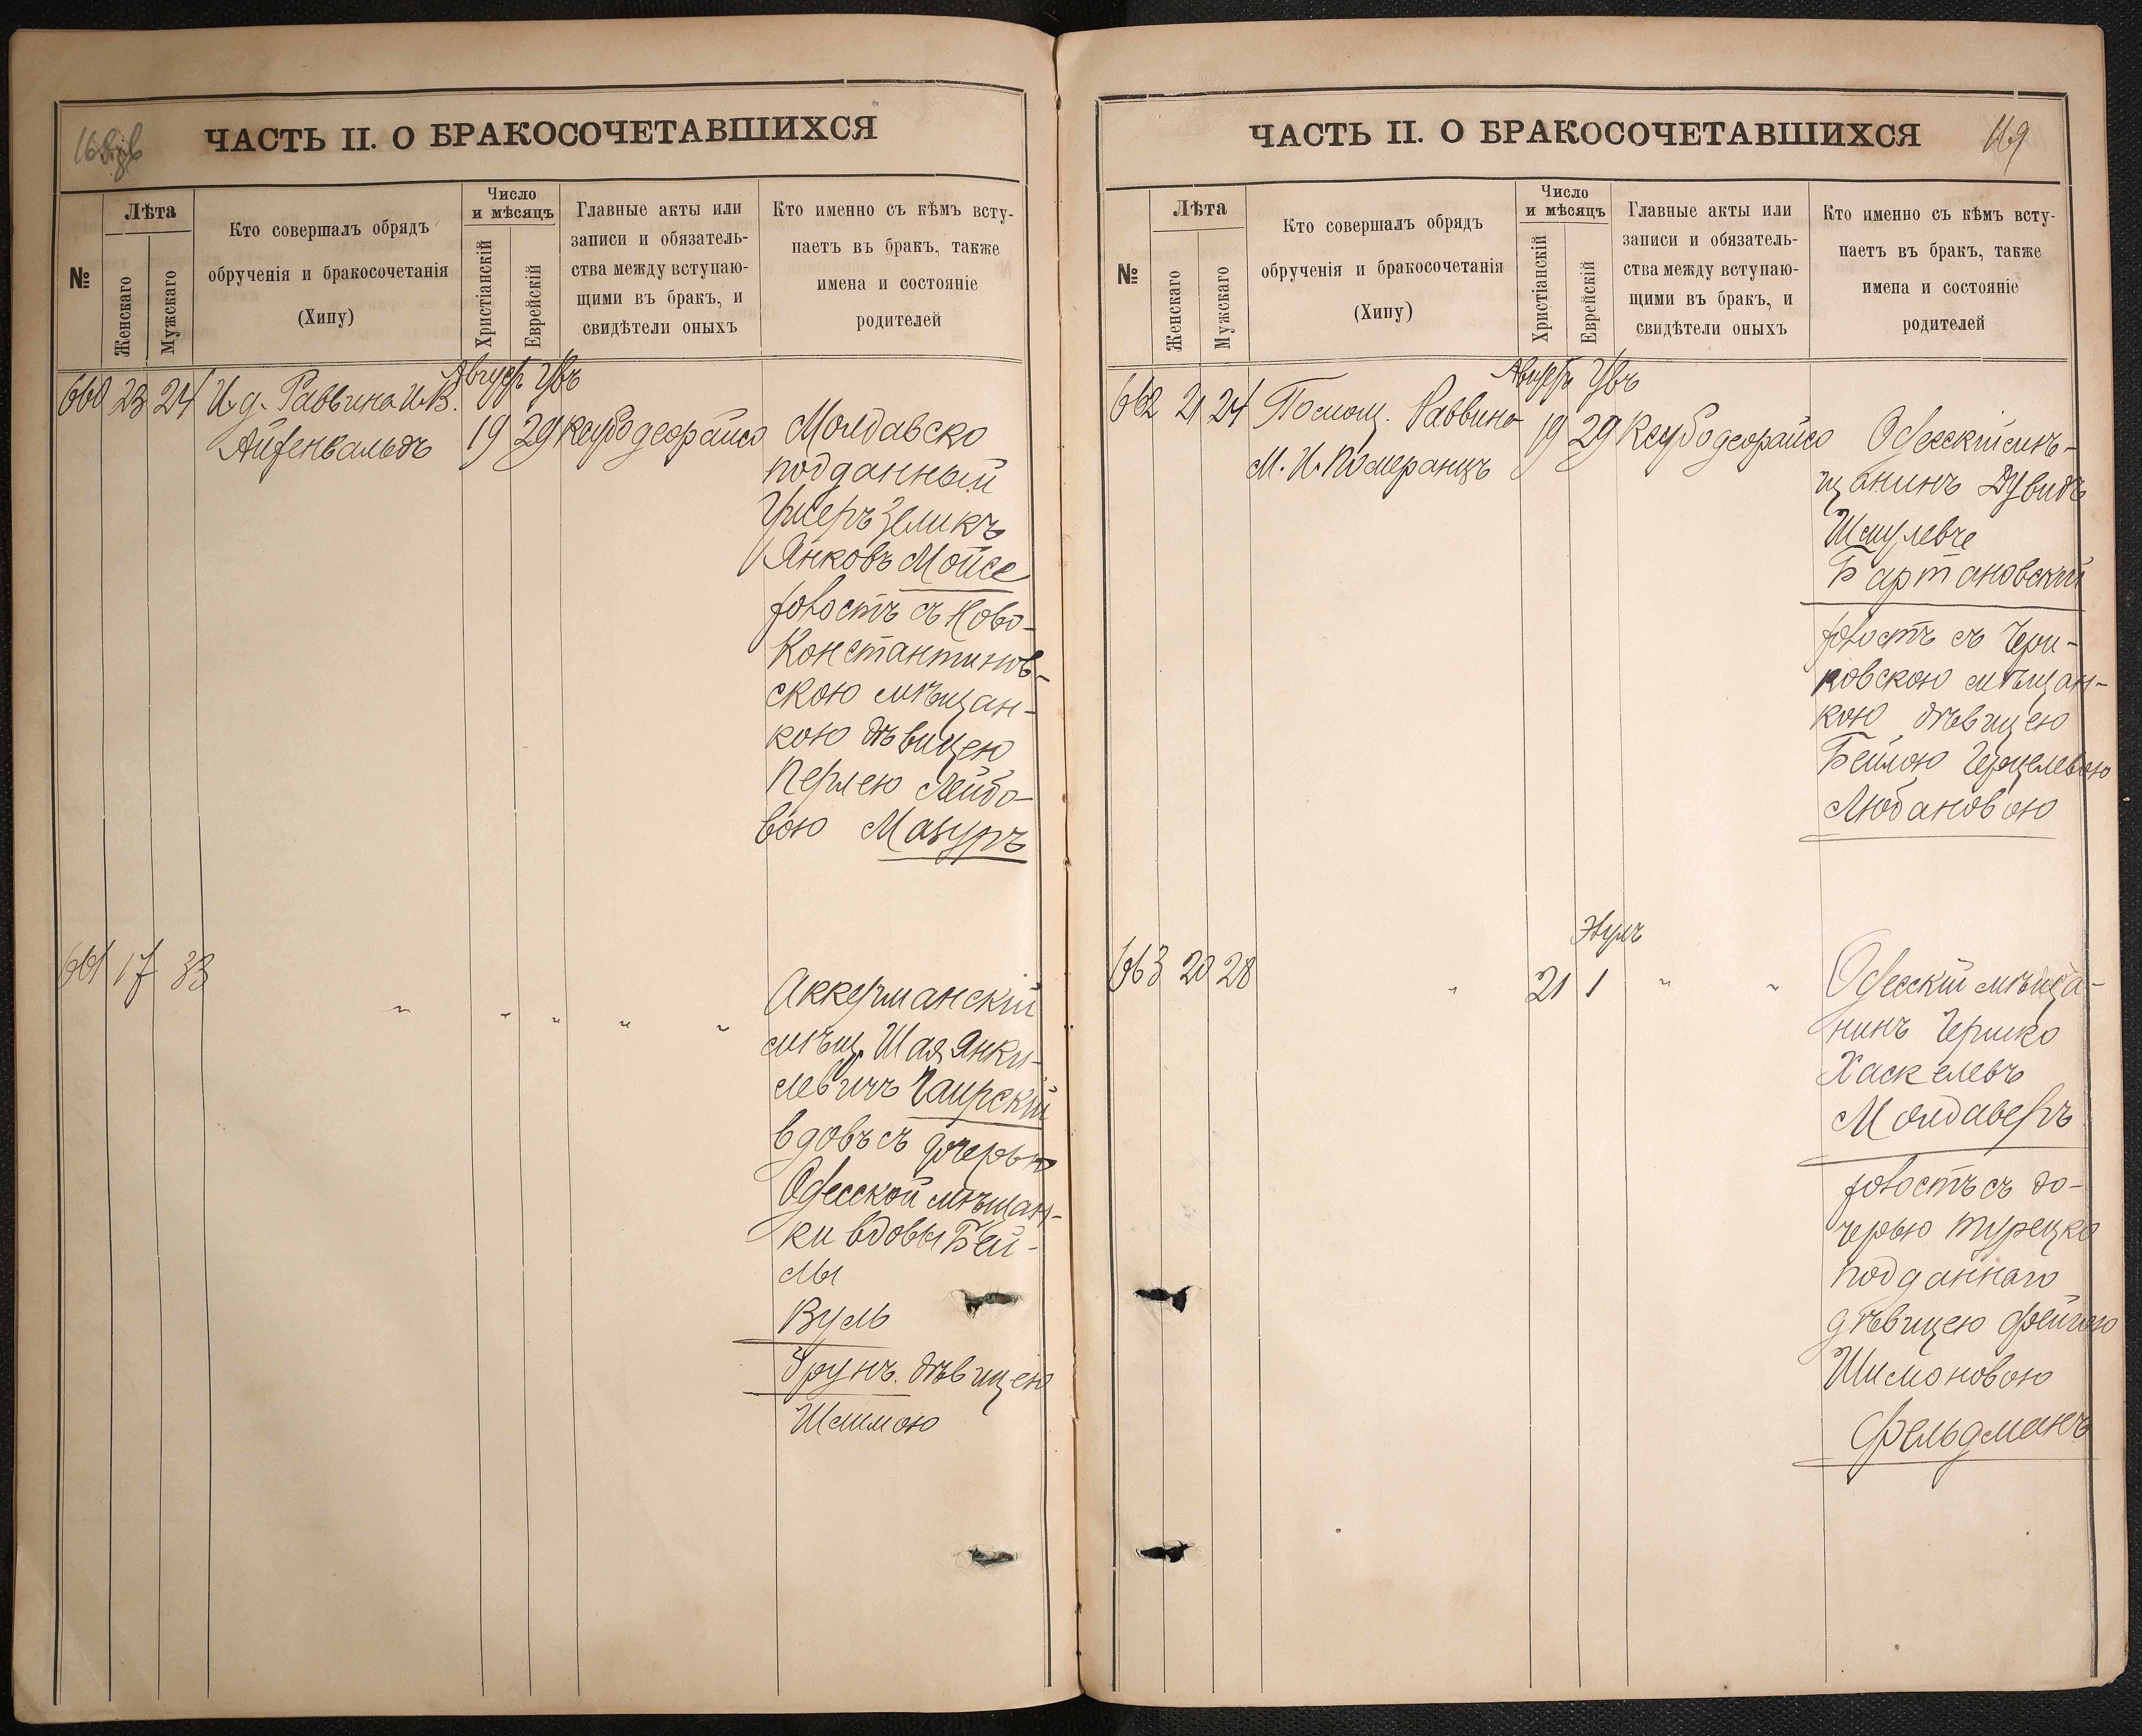 ЧАСТЬ II. О БРАКОСОЧЕТАВШИХСЯ
№
Лѣта
Женскаго
Мужскаго
Кто совершалъ обрядъ
обрученія и бракосочетанія
(Хипу)
Число
и мѣсяцъ
Христіанскій
Еврейскій
Главные акты или
записи и обязатель-
ства между вступаю-
щими въ бракъ, и
свидѣтели оныхъ
Кто именно съ кѣмъ всту-
паетъ въ бракъ, также
имена и состояніе
родителей
660 23 24 И. д. Раввина И. В.
Айзенвальдъ
19 29
Молдавско
подданный
Ушеръ Зеликъ
Янковъ Мойсе
холостъ съ Ново-
Константинов-
скою мѣщан-
кою дѣвицею
Перлею Лейбо-
вою Мазуръ
661 17 33
" " " " "
Аккерманскій
мѣщ. Шая Янки-
левичъ Гаирскій
вдовъ съ дочерью
Одесской мѣщан-
ки вдовы Бей-
лы
Вуль
Трунъ дѣвицею
ЧАСТЬ II. О БРАКОСОЧЕТАВШИХСЯ
169
№
Лѣта
Женскаго
Мужскаго
Кто совершалъ обрядъ
обрученія и бракосочетанія
(Хипу)
Число
и мѣсяцъ
Христіанскій
Еврейскій
Главные акты или
записи и обязатель-
ства между вступаю-
щими въ бракъ, и
свидѣтели оныхъ
Кто именно съ кѣмъ всту-
паетъ въ бракъ, также
имена и состояніе
родителей
662 21 24 Помощ. Раввина
М. И. Померанцъ
19 29
Одесскій мѣ-
щанинъ Дувидъ
Шмулевъ
Бартановскій
холостъ съ Чери-
ковскою мѣщан-
кою дѣвицею
Бейлою Герцелевою
Любановою
663 20 28
"
Элулъ
21 1
" "
Одесскій мѣща-
нинъ Гершко
Хаскелевъ
Молдаверъ
холостъ съ до-
черью турецко
подданнаго
дѣвицею Фейгою
Шимоновою
Фельдманъ